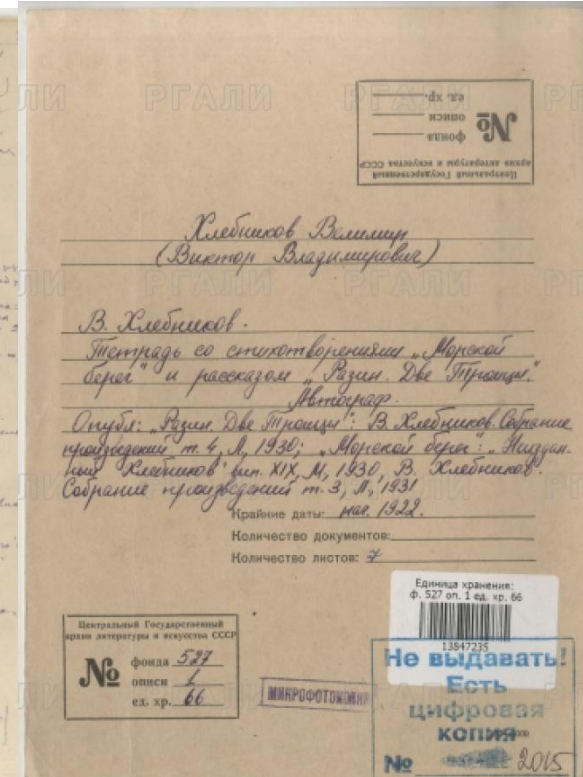 ЛИ РГАЛИ РГАЛИ Р
Центральный Государственный
архив литературы и искусства СССР
№
фонда
описи
ед. хр.
Хлебников Велимир
(Виктор Владимирович)
В. Хлебников.
Тетрадь со стихотворениями „Морской
берег" и рассказом „Разин. Две Троицы".
Автограф.
Опубл: „Разин. Две Троицы": В. Хлебников. Собрание
произведений т. 4, Л, 1930; „Морской берег": „Неиздан-
ный Хлебников" вып. XIX, М, 1930, В. Хлебников.
Собрание произведений т. 3, Л, 1931
Крайние даты: нач. 1922.
Количество документов:
Количество листов: 7
Единица хранения:
ф. 527 оп. 1 ед. хр. 66
13847235
Центральный Государственный
архив литературы и искусства СССР
№
фонда 527
описи 1
ед. хр. 66
МИКРОФОТОКОПИЯ
Не выдавать!
Есть
цифровая
копия
№ 2015